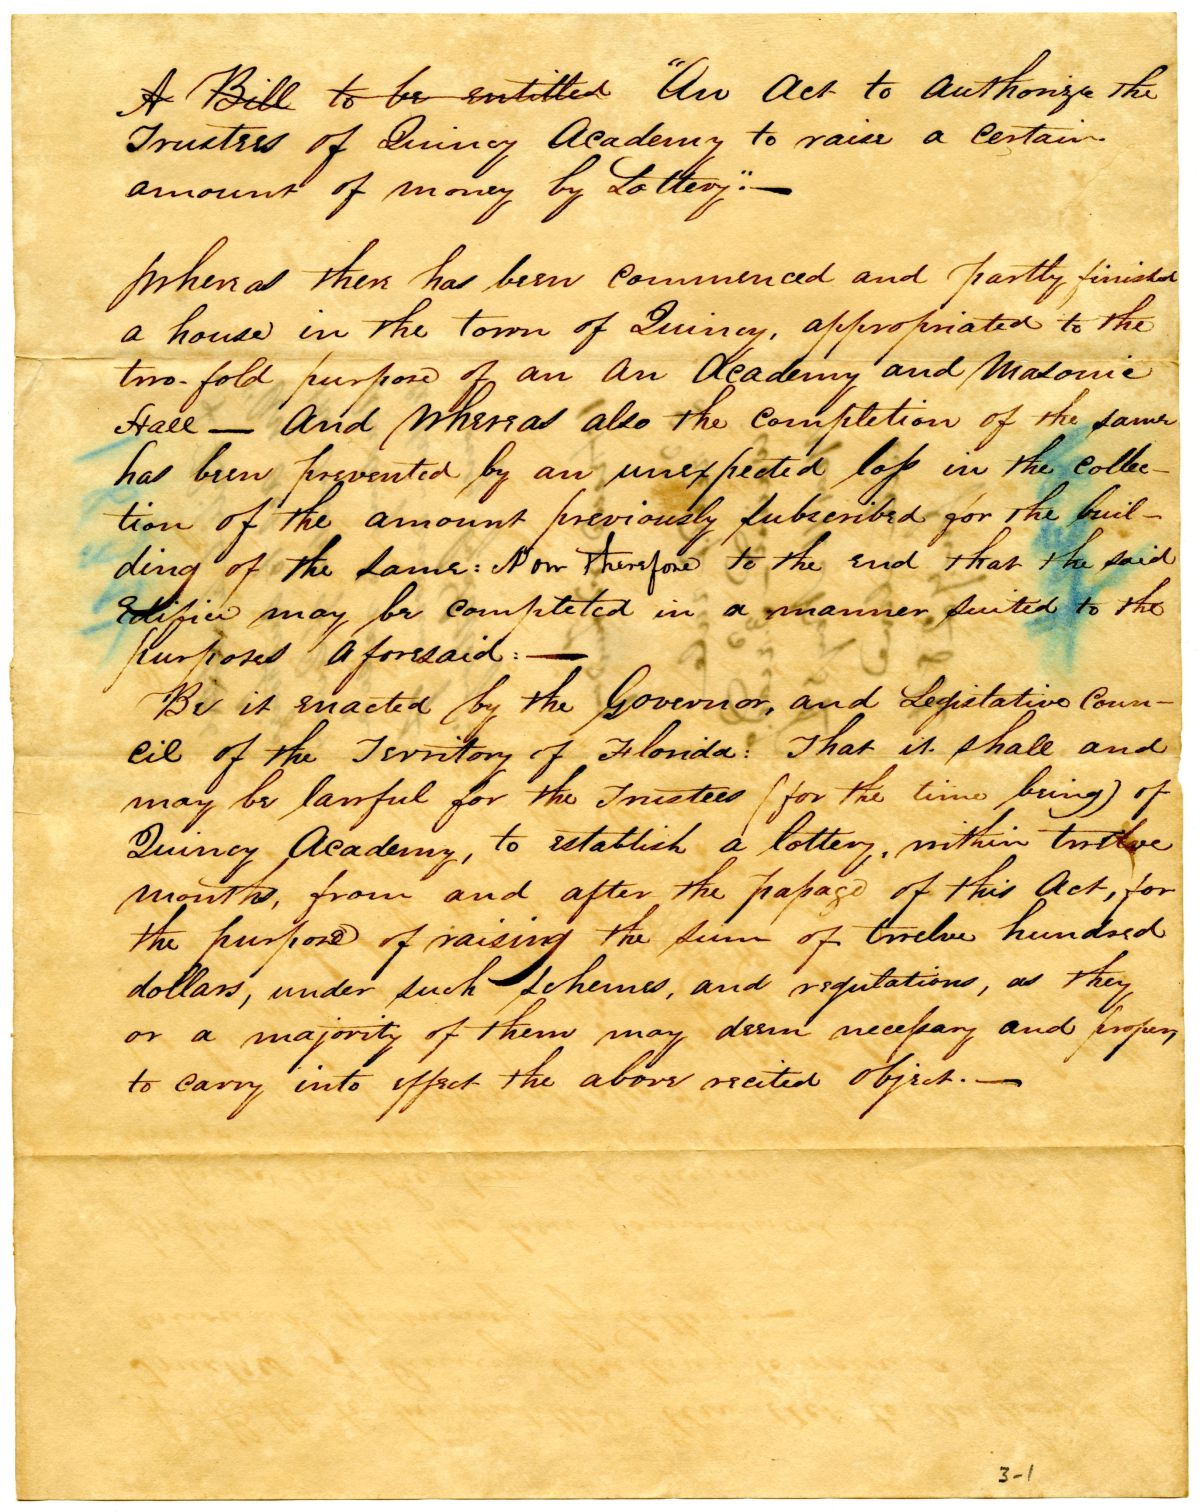 A Bill to be entitled "An Act to Authorize the
Trustees of Quincy Academy to raise a certain
amount of money by Lottery":—
Whereas there has been commenced and partly finished
a house in the town of Quincy, appropriated to the
two-fold purpose of an An Academy and Masonic
Hall — And Whereas also the completion of the same
has been prevented by an unexpected loss in the collec-
tion of the amount previously subscribed for the buil-
ding of the same: Now therefore to the end that the said
Edifice may be completed in a manner suited to the
purposes aforesaid: —
Be it enacted by the Governor, and Legislative Coun-
cil of the Territory of Florida: That it shall and
may be lawful for the Trustees (for the time being) of
Quincy Academy, to establish a lottery, within twelve
months, from and after the passage of this Act, for
the purpose of raising the sum of twelve hundred
dollars, under such schemes, and regulations, as they
or a majority of them may deem necessary and proper,
to carry into effect the above recited object. —
3-1